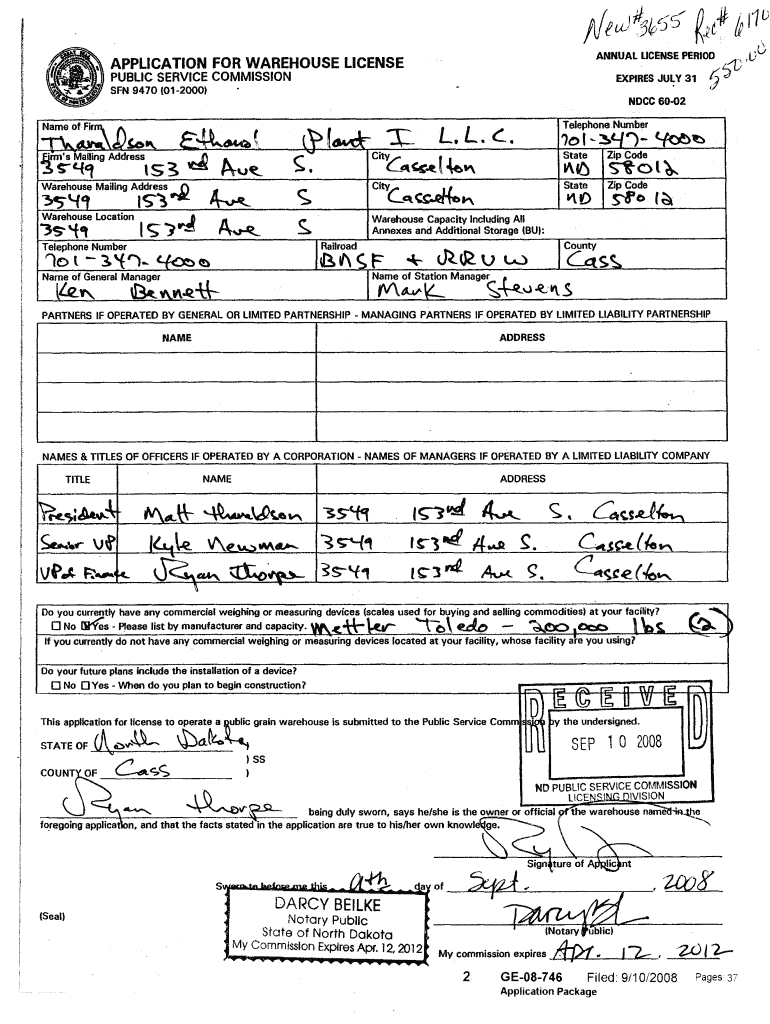 New #3655 Rec# 6170
550.00
APPLICATION FOR WAREHOUSE LICENSE
PUBLIC SERVICE COMMISSION
SFN 9470 (01-2000)
ANNUAL LICENSE PERIOD
EXPIRES JULY 31
NDCC 60-02
Name of Firm
Tharaldson Ethanol Plant I L.L.C.
Telephone Number
701-347-4000
Firm's Mailing Address
3549 153rd Ave S.
City
Casselton
State
ND
Zip Code
58012
Warehouse Mailing Address
3549 153rd Ave S
City
Casselton
State
ND
Zip Code
58012
Warehouse Location
3549 153rd Ave S
Warehouse Capacity Including All
Annexes and Additional Storage (BU):
Telephone Number
701-347-4000
Railroad
BNSF + RRVW
County
Cass
Name of General Manager
Ken Bennett
Name of Station Manager
Mark Stevens
PARTNERS IF OPERATED BY GENERAL OR LIMITED PARTNERSHIP - MANAGING PARTNERS IF OPERATED BY LIMITED LIABILITY PARTNERSHIP
NAME ADDRESS
NAMES & TITLES OF OFFICERS IF OPERATED BY A CORPORATION - NAMES OF MANAGERS IF OPERATED BY A LIMITED LIABILITY COMPANY
TITLE NAME ADDRESS
President Matt Tharaldson 3549 153rd Ave S. Casselton
Senior VP Kyle Newman 3549 153rd Ave S. Casselton
VP of Finance Ryan Thorpe 3549 153rd Ave S. Casselton
Do you currently have any commercial weighing or measuring devices (scales used for buying and selling commodities) at your facility?
No Yes - Please list by manufacturer and capacity. Mettler Toledo - 200,000 lbs (2)
If you currently do not have any commercial weighing or measuring devices located at your facility, whose facility are you using?
Do your future plans include the installation of a device?
No Yes - When do you plan to begin construction?
RECEIVED
SEP 10 2008
ND PUBLIC SERVICE COMMISSION
LICENSING DIVISION
This application for license to operate a public grain warehouse is submitted to the Public Service Commission by the undersigned.
STATE OF North Dakota
) SS
COUNTY OF Cass )
Ryan Thorpe being duly sworn, says he/she is the owner or official of the warehouse named in the
foregoing application, and that the facts stated in the application are true to his/her own knowledge.
Signature of Applicant
Sworn to before me this 9th day of Sept. , 2008
DARCY BEILKE
Notary Public
State of North Dakota
My Commission Expires Apr. 12, 2012
(Seal)
(Notary Public)
My commission expires Apr. 12, 2012
2 GE-08-746 Filed: 9/10/2008 Pages: 37
Application Package